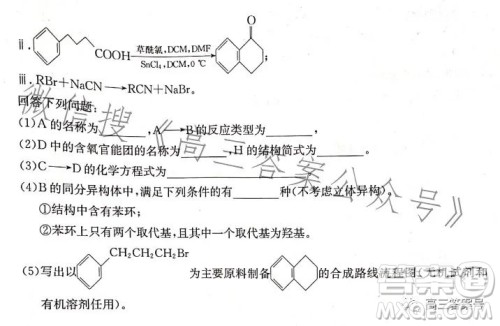 O
ii. COOH 草酰氯,DCM,DMF
SnCl₄,DCM,0 ℃ ;
iii. RBr+NaCN→RCN+NaBr。
回答下列问题:
(1)A的名称为______,A→B的反应类型为______。
(2)D中的含氧官能团的名称为______,H的结构简式为______。
(3)C→D的化学方程式为______
(4)B的同分异构体中,满足下列条件的有______种(不考虑立体异构)。
①结构中含有苯环;
②苯环上只有两个取代基,且其中一个取代基为羟基。
CH₂CH₂CH₂Br
(5)写出以 为主要原料制备 的合成路线流程图(无机试剂和
有机溶剂任用)。
微信搜《高三答案公众号》
高三答案号